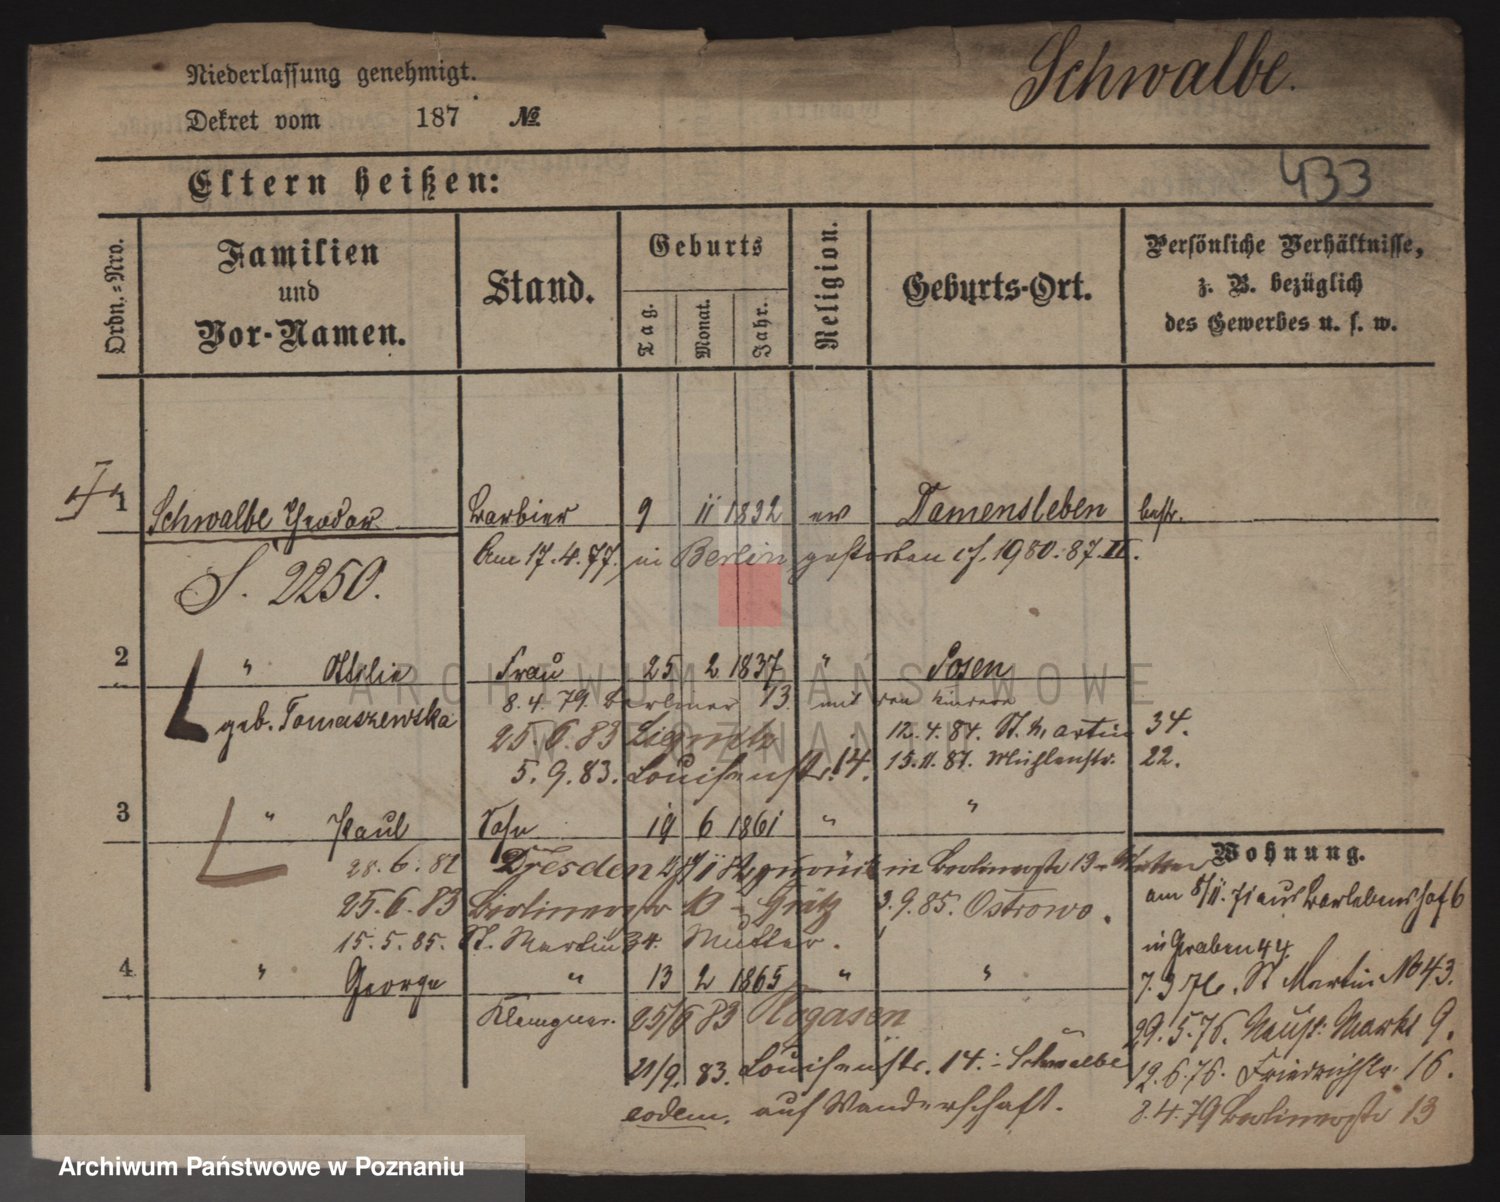 Niederlassung genehmigt.
Schwalbe.
Dekret vom 187 №
Eltern heißen:
433
Ordn.-Nro.
Familien und Vor-Namen.
Stand.
Geburts
Tag.
Monat.
Jahr.
Religion.
Geburts-Ort.
Persönliche Verhältnisse,
z. B. bezüglich
des Gewerbes u. s. w.
1 Schwalbe Theodor Barbier 9 11 1832 ev Damensleben bestr.
Am 17.4.77. in Berlin gestorben cf. 1980.87.II.
S. 2250.
2 " Ottilie Frau 25 2 1837 " Posen
geb. Tomaszewska
8.4.79. Berliner 13. mit den Kindern
25.6.83 Liegnitz 12.4.84. St. Martin 34.
5.9.83. Louisenstr. 14. 15.11.87. Mühlenstr. 22.
3 " Paul Sohn 19 6 1861 " "
28.6.82 Dresden zurück in Berlinerstr 13 Mutter
25.6.83 Berlinerstr 13 - Grätz 3.9.85. Ostrowo.
15.5.85. St. Martin 34. Mutter.
4 " George " 13 2 1865 " "
Klempner. 25/6 83 Rogasen
21/9. 83. Louisenstr. 14. - Schwalbe
eodem. auf Wanderschaft.
Wohnung.
am 8/11.71 aus Barlebenshof 6
in Graben 44.
7.3 76. St Martin No 43.
29.5.76. Neust. Markt 9.
12.6.76. Friedrichstr. 16.
8.4.79 Berlinerstr 13
ARCHIWUM PAŃSTWOWE
W POZNANIU
Archiwum Państwowe w Poznaniu